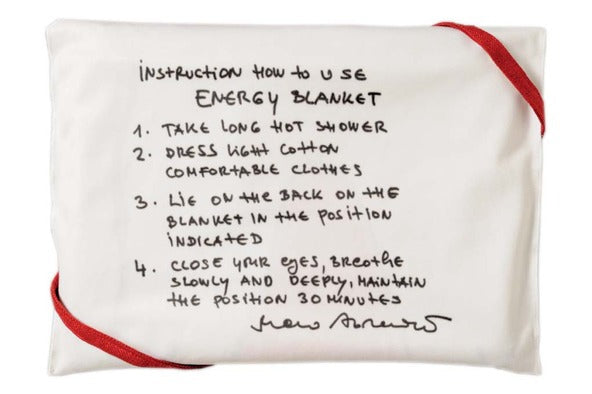 INSTRUCTION HOW to USE
ENERGY BLANKET
1. TAKE LONG HOT SHOWER
2. DRESS LIGHT COTTON
COMFORTABLE CLOTHES
3. LIE ON the BACK ON the
BLANKET IN the POSITION
INDICATED
4. CLOSE YOUR EYES, BREATHE
SLOWLY AND DEEPLY, MAINTAIN
the POSITION 30 MINUTES